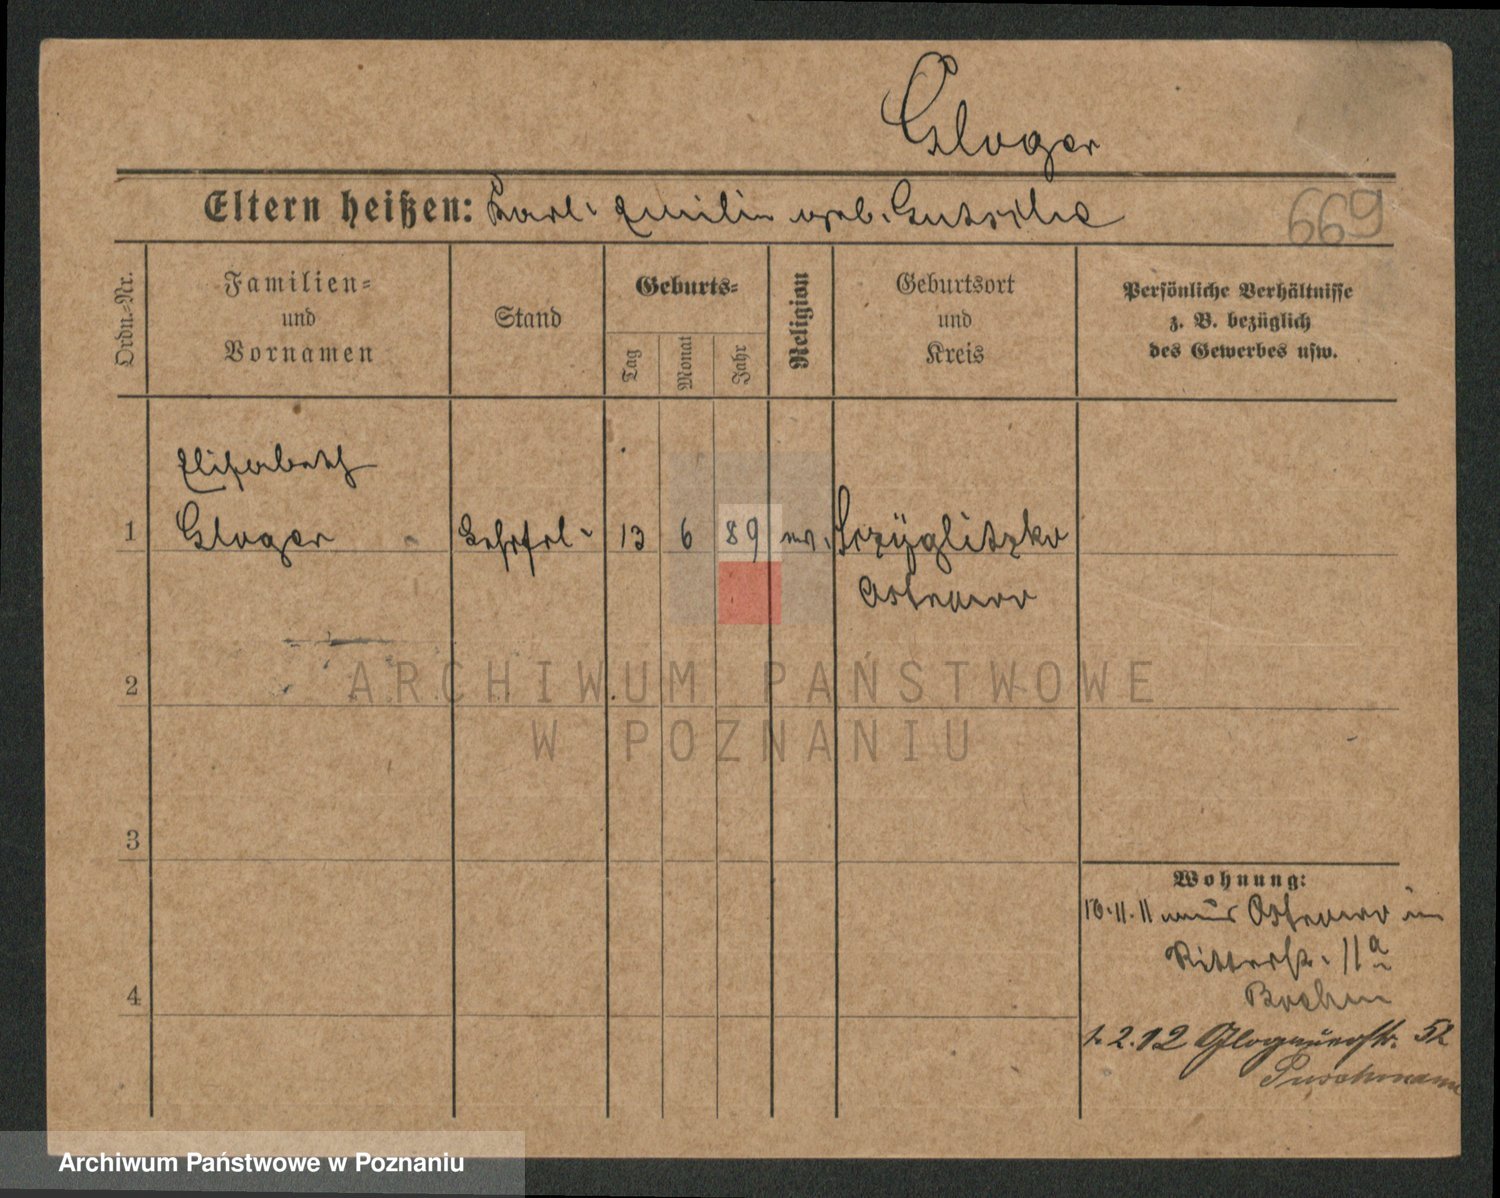 Gloger
669
Eltern heißen: Karl. Emilie geb. Gutsche
Ordn.-Nr.
Familien-
und
Vornamen
Stand
Geburts-
Tag
Monat
Jahr
Religion
Geburtsort
und
Kreis
Persönliche Verhältnisse
z. B. bezüglich
des Gewerbes usw.
Elisabeth
1 Gloger 13 6 89 ev.
Ostrowo
2
3
4
Wohnung:
10.11.11 aus Ostrowo in
Ritterstr. 11a
1.2.12 Glogauerstr. 52
Puschmann
ARCHIWUM PAŃSTWOWE
W POZNANIU
Archiwum Państwowe w Poznaniu